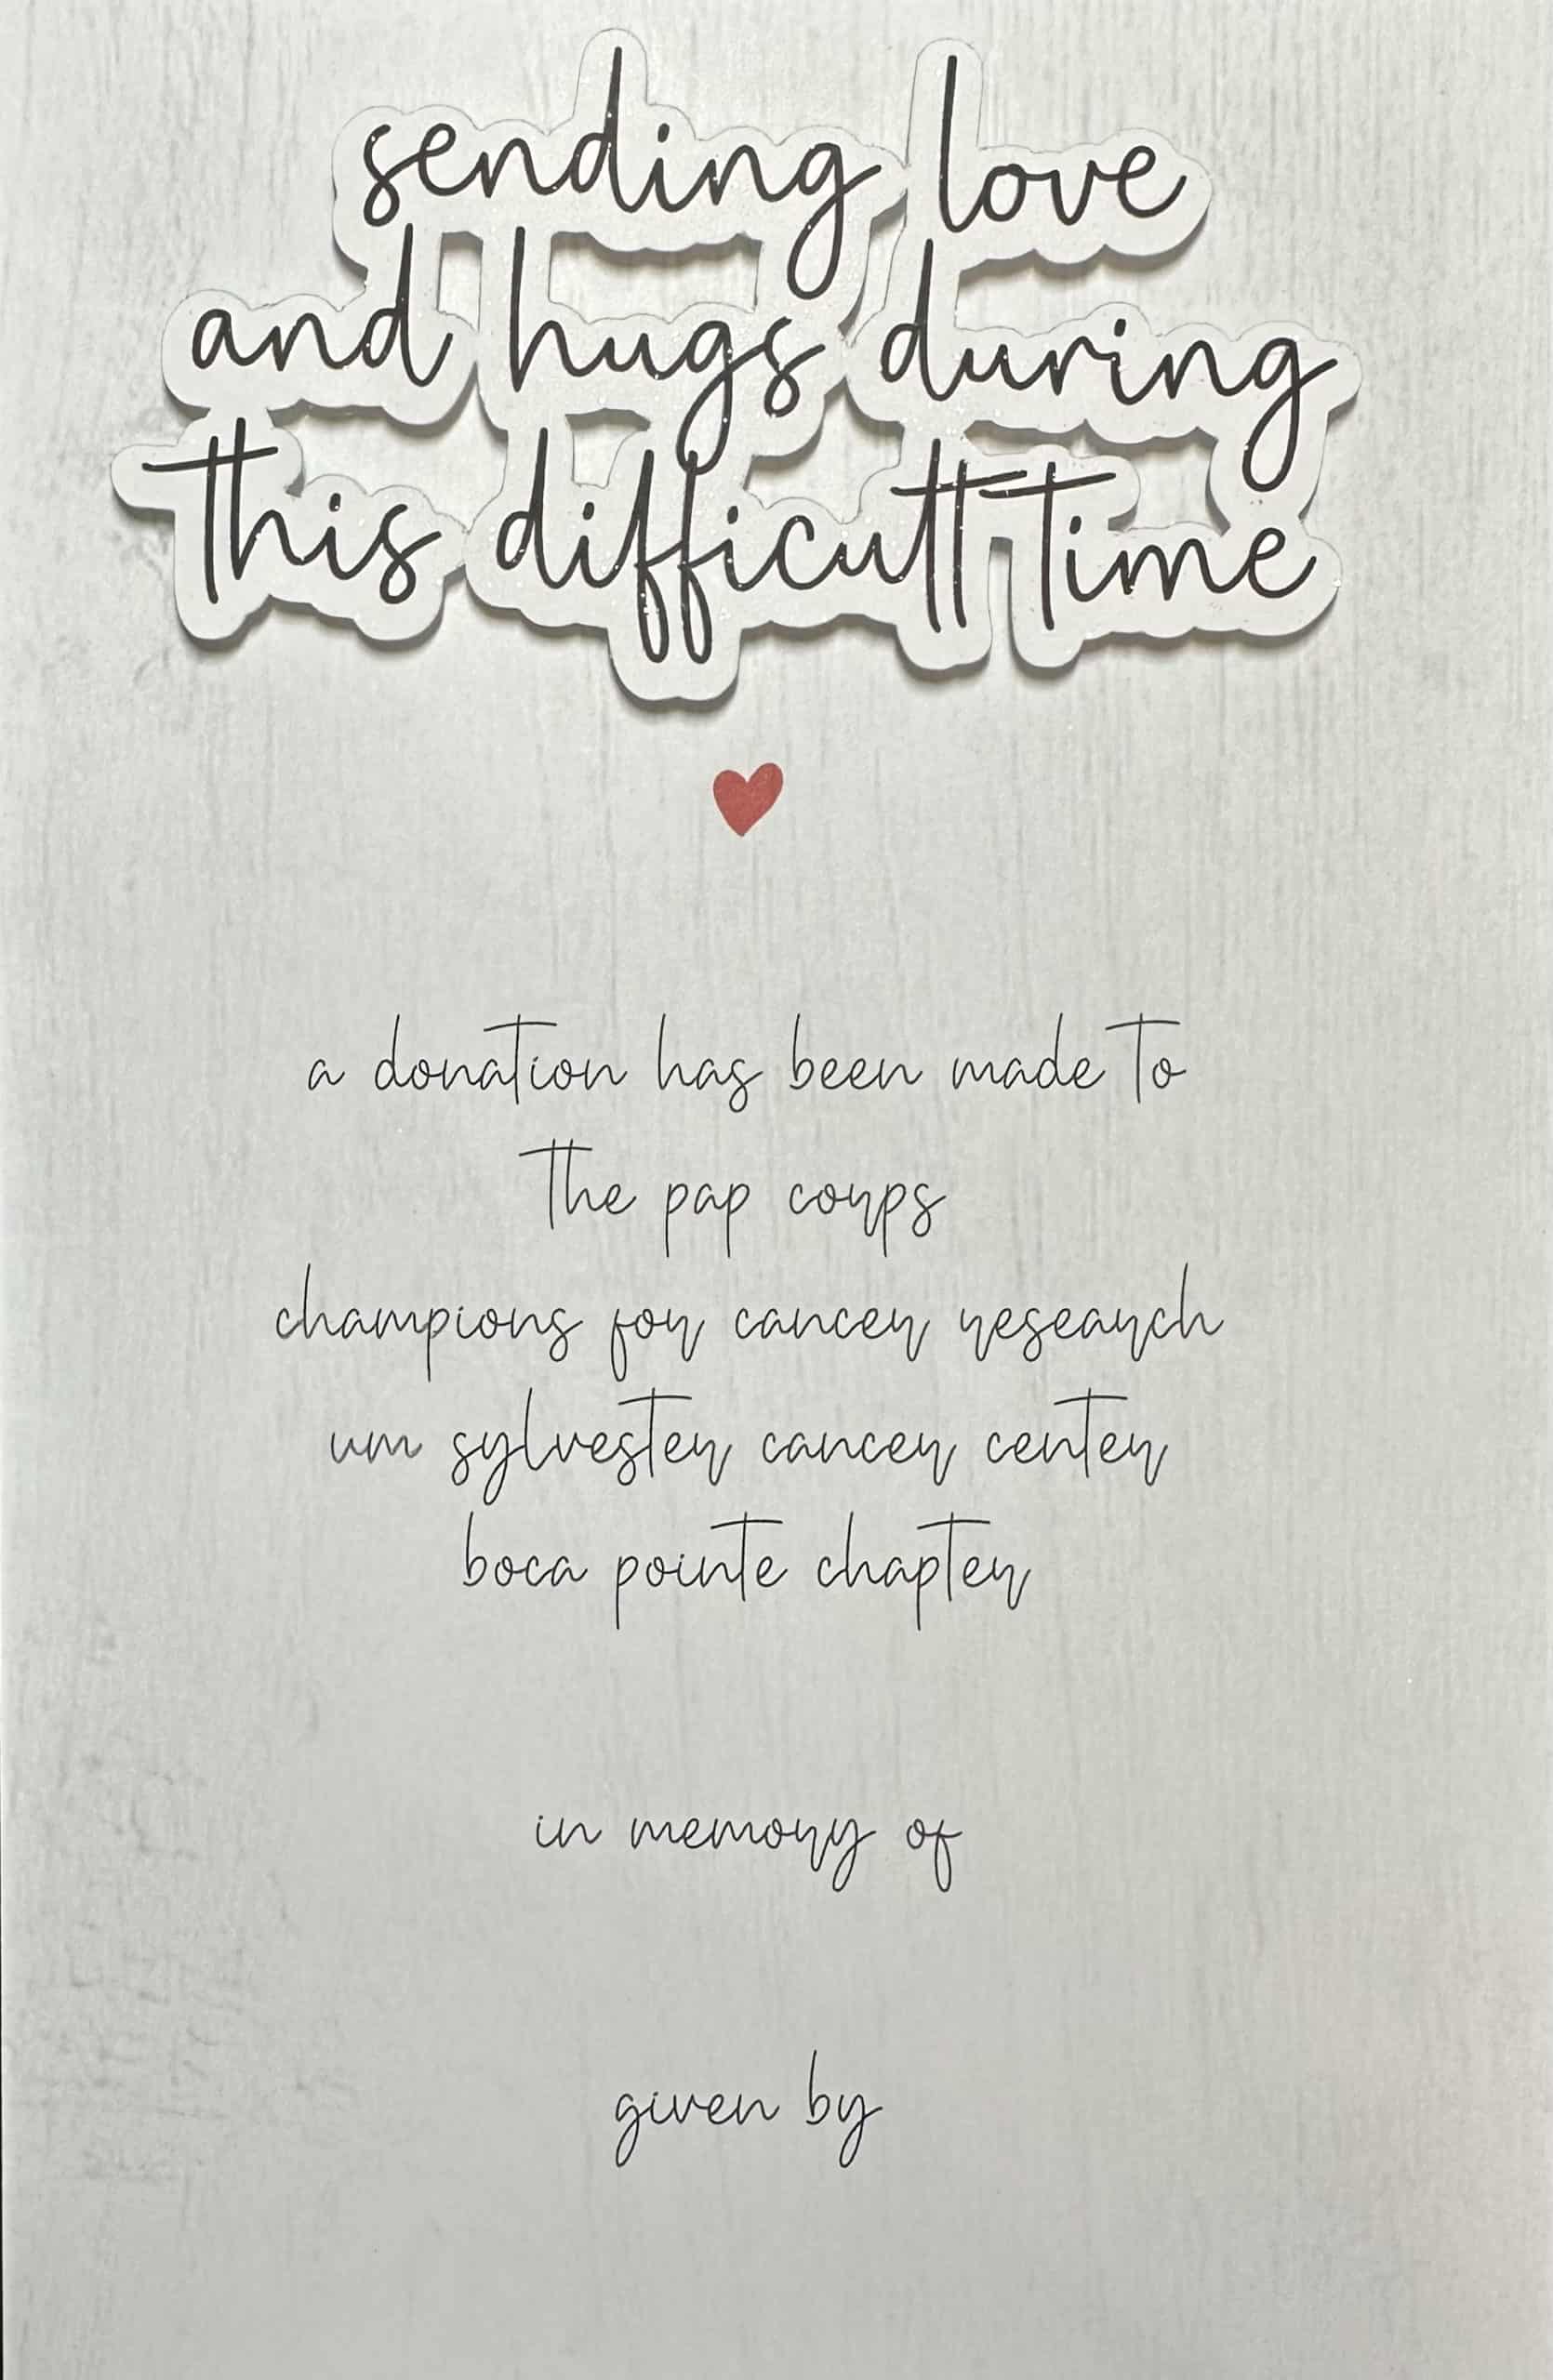 sending love
and hugs during
this difficult time
a donation has been made to
the pap corps
champions for cancer research
um sylvester cancer center
boca pointe chapter
in memory of
given by